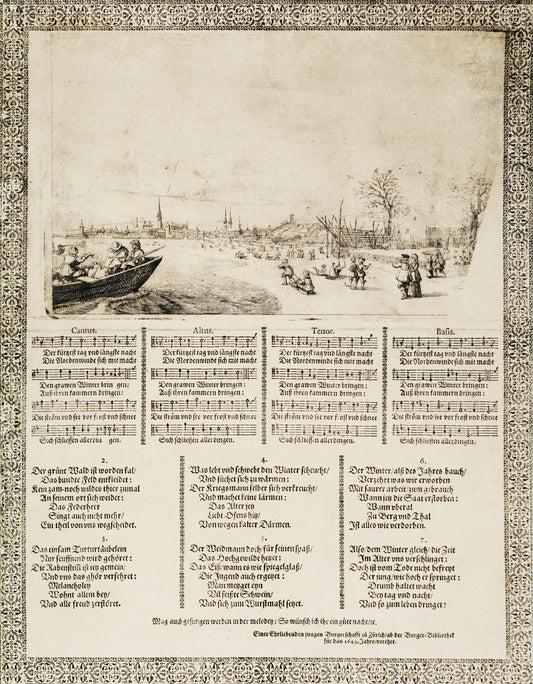 Cantus.
Der kürtzest tag vnd längste nacht
Die Nordenwinde sich mit macht
Den grawen Winter brin gen:
Auß ihren kammern dringen:
Die ström vnd see vor frost vnd schnee
Sich schliessen allerdin gen.
Altus.
Der kürtzest tag vnd längste nacht
Die Nordenwinde sich mit macht
Den grawen Winter bringen:
Auß ihren kammern dringen:
Die ström vnd see vor frost vnd schnee
Sich schliessen allerdingen.
Tenor.
Der kürtzest tag vnd längste nacht
Die Nordenwinde sich mit macht
Den grawen Winter bringen:
Auß ihren kammern dringen:
Die ström vnd see vor frost vnd schnee
Sich schliessen allerdingen.
Baß.
Der kürtzest tag vnd längste nacht
Die Nordenwinde sich mit macht
Den grawen Winter bringen:
Auß ihren kammern dringen:
Die ström vnd see vor frost vnd schnee
Sich schliessen allerdingen.
2.
Der grüne Wald ist worden fal/
Das bundte Feld entkleidet:
Kein zam-noch wildes thier zumal
An seinem ort sich weidet:
Das Federheer
Singt auch nicht mehr/
Ein theil von vns wegscheidet.
3.
Das einsam Turturtäubelein
Nur seufftzend wird gehöret:
Die Rabenstim̃ ist ietz gemein/
Vnd vns das ghör versehret:
Melancholey
Wohnt allem bey/
Vnd alle freud zerstöret.
4.
Was lebt vnd schwebt den Winter scheucht/
Vnd suchet sich zu wärmen:
Der Kriegsmann selber sich verkreucht/
Vnd machet keine lärmen:
Das Alter jetz
Liebt Ofens hitz/
Von wegen kalter Därmen.
5.
Der Weidmann doch für seinen spaß/
Das Hochgewilde hetzet:
Das Eiß wann es wie spiegelglaß/
Die Jugend auch ergetzet:
Man metzget eyn
Vil feißte Schwein/
Vnd sich zum Wurstmahl setzet.
6.
Der Winter/ alß des Jahres bauch/
Verzehrt was wir erworben
Mit saurer arbeit zum gebrauch
Wann jetz die Saat erstorben:
Wann vberal
Zu Berg vnd Thal
Ist alles wie verdorben.
7.
Also dem Winter gleich/ die Zeit
Im Alter vns verschlinget:
Doch ist vom Tode nicht befreyt
Der jung/ wie hoch er springet:
Drumb haltet wacht
Bey tag vnd nacht/
Vnd so zum leben dringet!
Mag auch gesungen werden in der melodey: So wünsch ich ihr ein gute nacht/ec.
Einer Ehrliebenden jungen Burgerschafft zu Zürich/ ab der Burger-Bibliothek
für das 1649. Jahr/ verehrt.